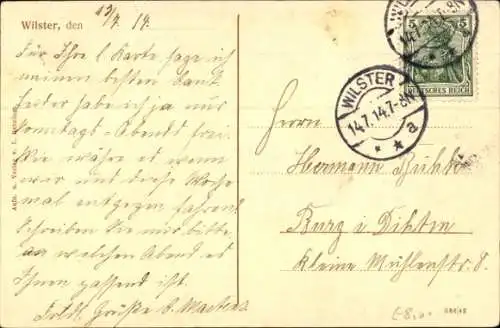 Wilster, den 13/7. 14.
Für Ihre l. Karte sage ich
meinen besten Dank
Leider habe ich ja nur
Sonntagt-Abends frei.
Wie währe es wenn
wer und diese Woche
mal entgegen fahren
Schreiben Sie mir bitte
an welchen Abend es
Ihnen passend ist.
Frdl. Grüße
WILSTER
14.7.14.7-8N
a
5
DEUTSCHES REICH
WILSTER
14.7.14.7-8N
Herrn
Hermann
Burg i Dithm
kleine Mühlenstr. 8.